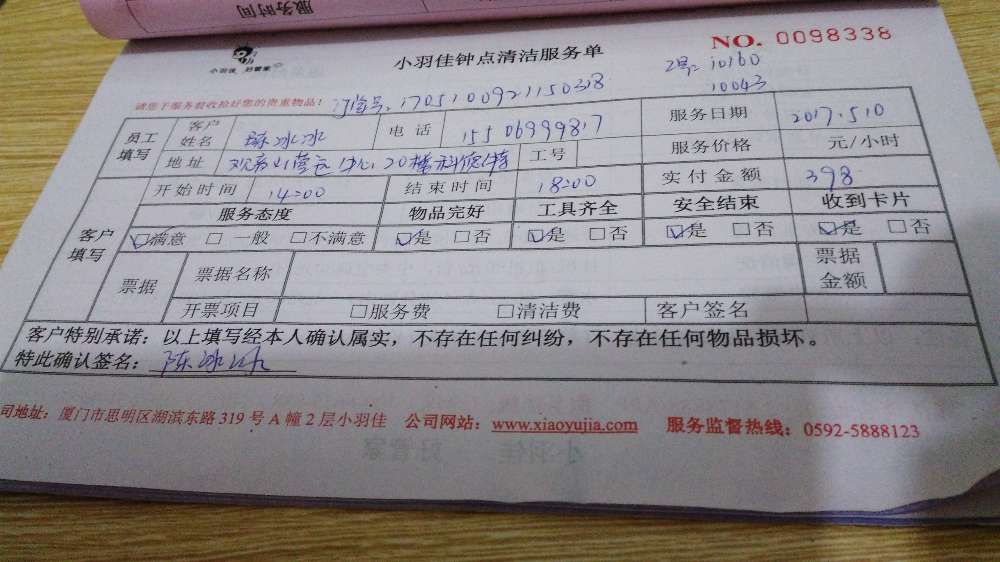 服务时间
小羽佳 好管家
小羽佳钟点清洁服务单
NO. 0098338
请您于服务前收拾好您的贵重物品！
订单号：1705100921150318
工号：10160
10043
员工填写 客户姓名 陈冰冰 电话 15506999817 服务日期 2017.5.10
地址 观音山营运中心20楼科德特 工号 服务价格 元/小时
客户填写 开始时间 14:00 结束时间 18:00 实付金额 398
服务态度 物品完好 工具齐全 安全结束 收到卡片
☑满意 □一般 □不满意 ☑是 □否 ☑是 □否 ☑是 □否 ☑是 □否
票据 票据名称 票据金额
开票项目 □服务费 □清洁费 客户签名
客户特别承诺：以上填写经本人确认属实，不存在任何纠纷，不存在任何物品损坏。
特此确认签名：陈冰冰
司地址：厦门市思明区湖滨东路 319 号 A 幢 2 层小羽佳 公司网站：www.xiaoyujia.com 服务监督热线：0592-5888123